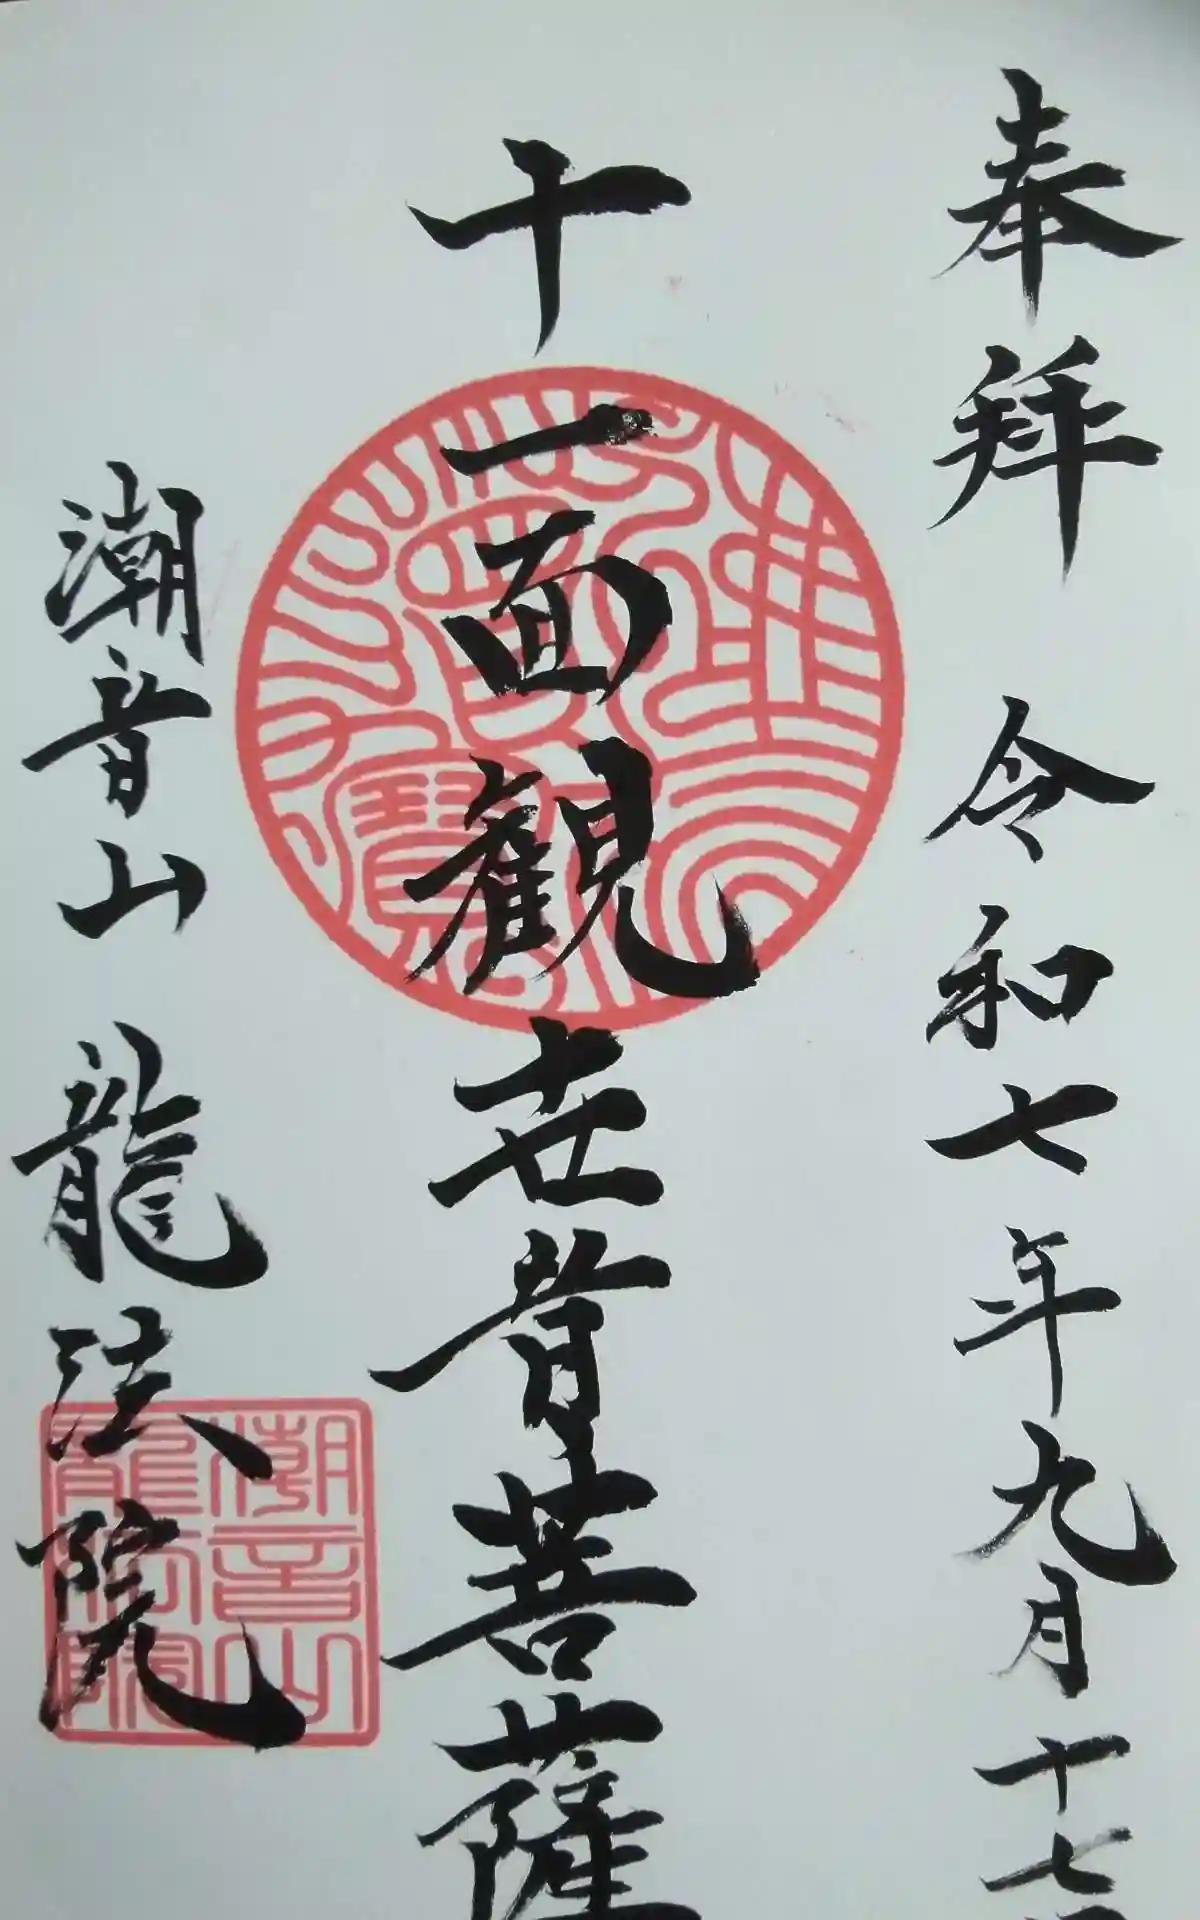 奉拜 令和七年九月十七日
十一面観世音菩薩
潮音山 龍法院
佛法僧寶
潮音山龍法院印